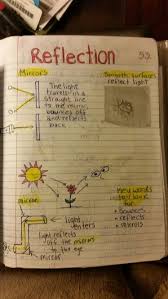 Reflection
Mirrors
The light
travels in a
straight line
to the mirror,
bounces off
and reflects
back
Smooth surfaces
reflect light
mirror
light
enters
light reflects
off the mirrors
to the eye
mirror
Key words
to look for
• bounces
• reflects
• mirrors